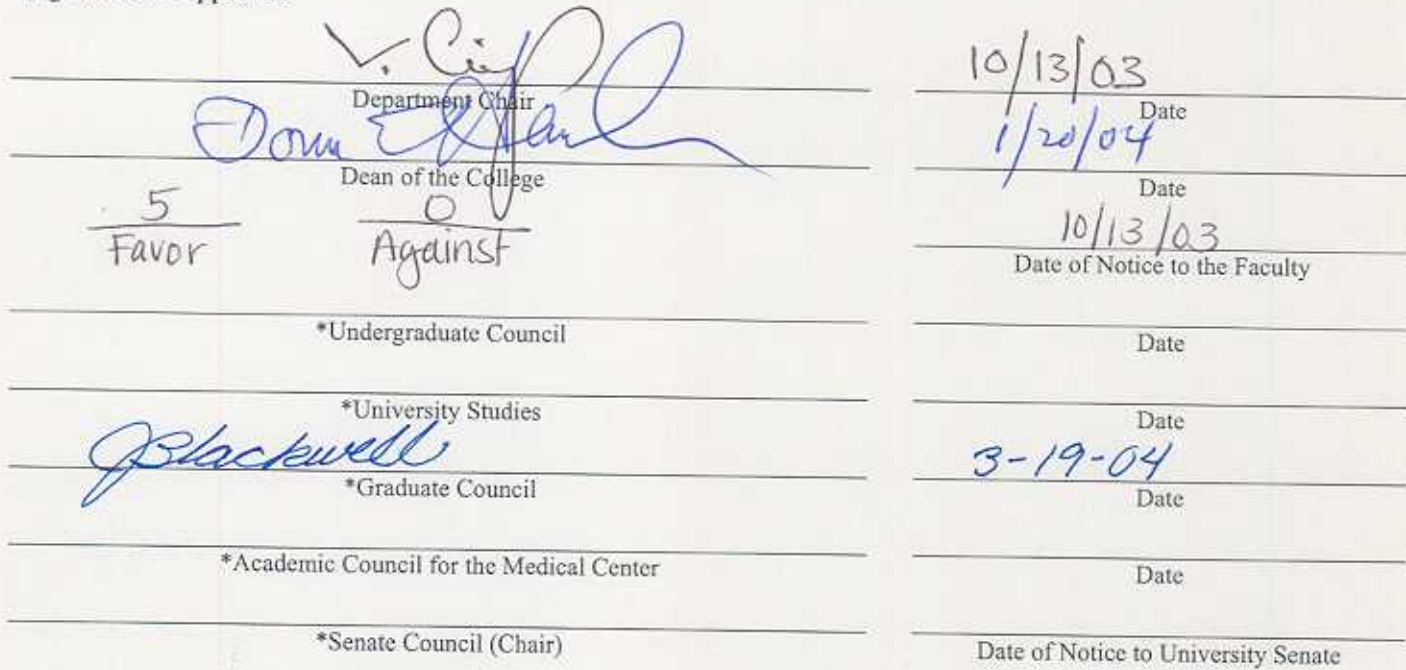 V. 10/13/03
Department Chair Date
1/20/04
Dean of the College Date
5 0 10/13/03
Favor Against Date of Notice to the Faculty
*Undergraduate Council Date
*University Studies Date
JBlackwell 3-19-04
*Graduate Council Date
*Academic Council for the Medical Center Date
*Senate Council (Chair) Date of Notice to University Senate